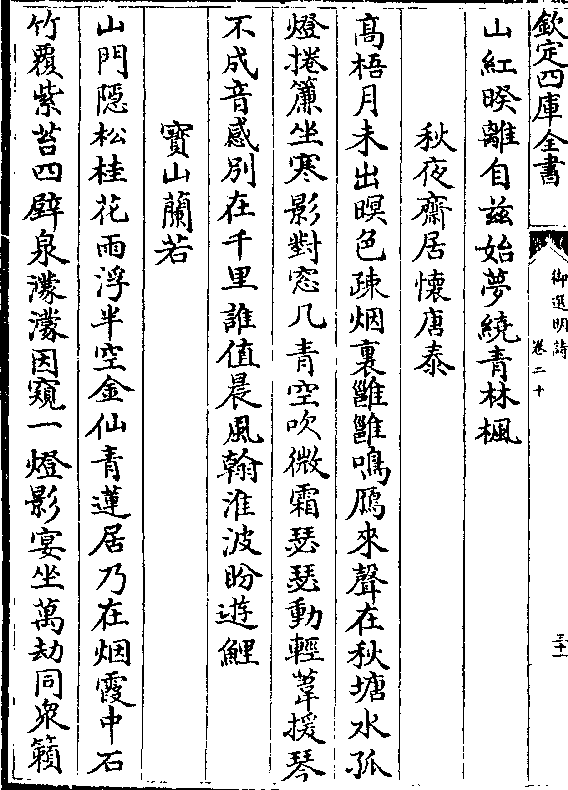 欽定四庫全書
御選明詩
卷二十
三十一
山紅暌離自兹始夢繞青林楓
秋夜齋居懷唐泰
髙梧月未出暝色疎烟裏雝雝鳴鴈來聲在秋塘水孤
燈捲簾坐寒影對窓几青空吹微霜瑟瑟動輕葦援琴
不成音感别在千里誰值晨風翰淮波盼遊鯉
寶山蘭若
山門隠松桂花雨浮半空金仙青蓮居乃在烟霞中石
竹覆紫苔四壁泉濛濛因窺一燈影宴坐萬劫同衆籟